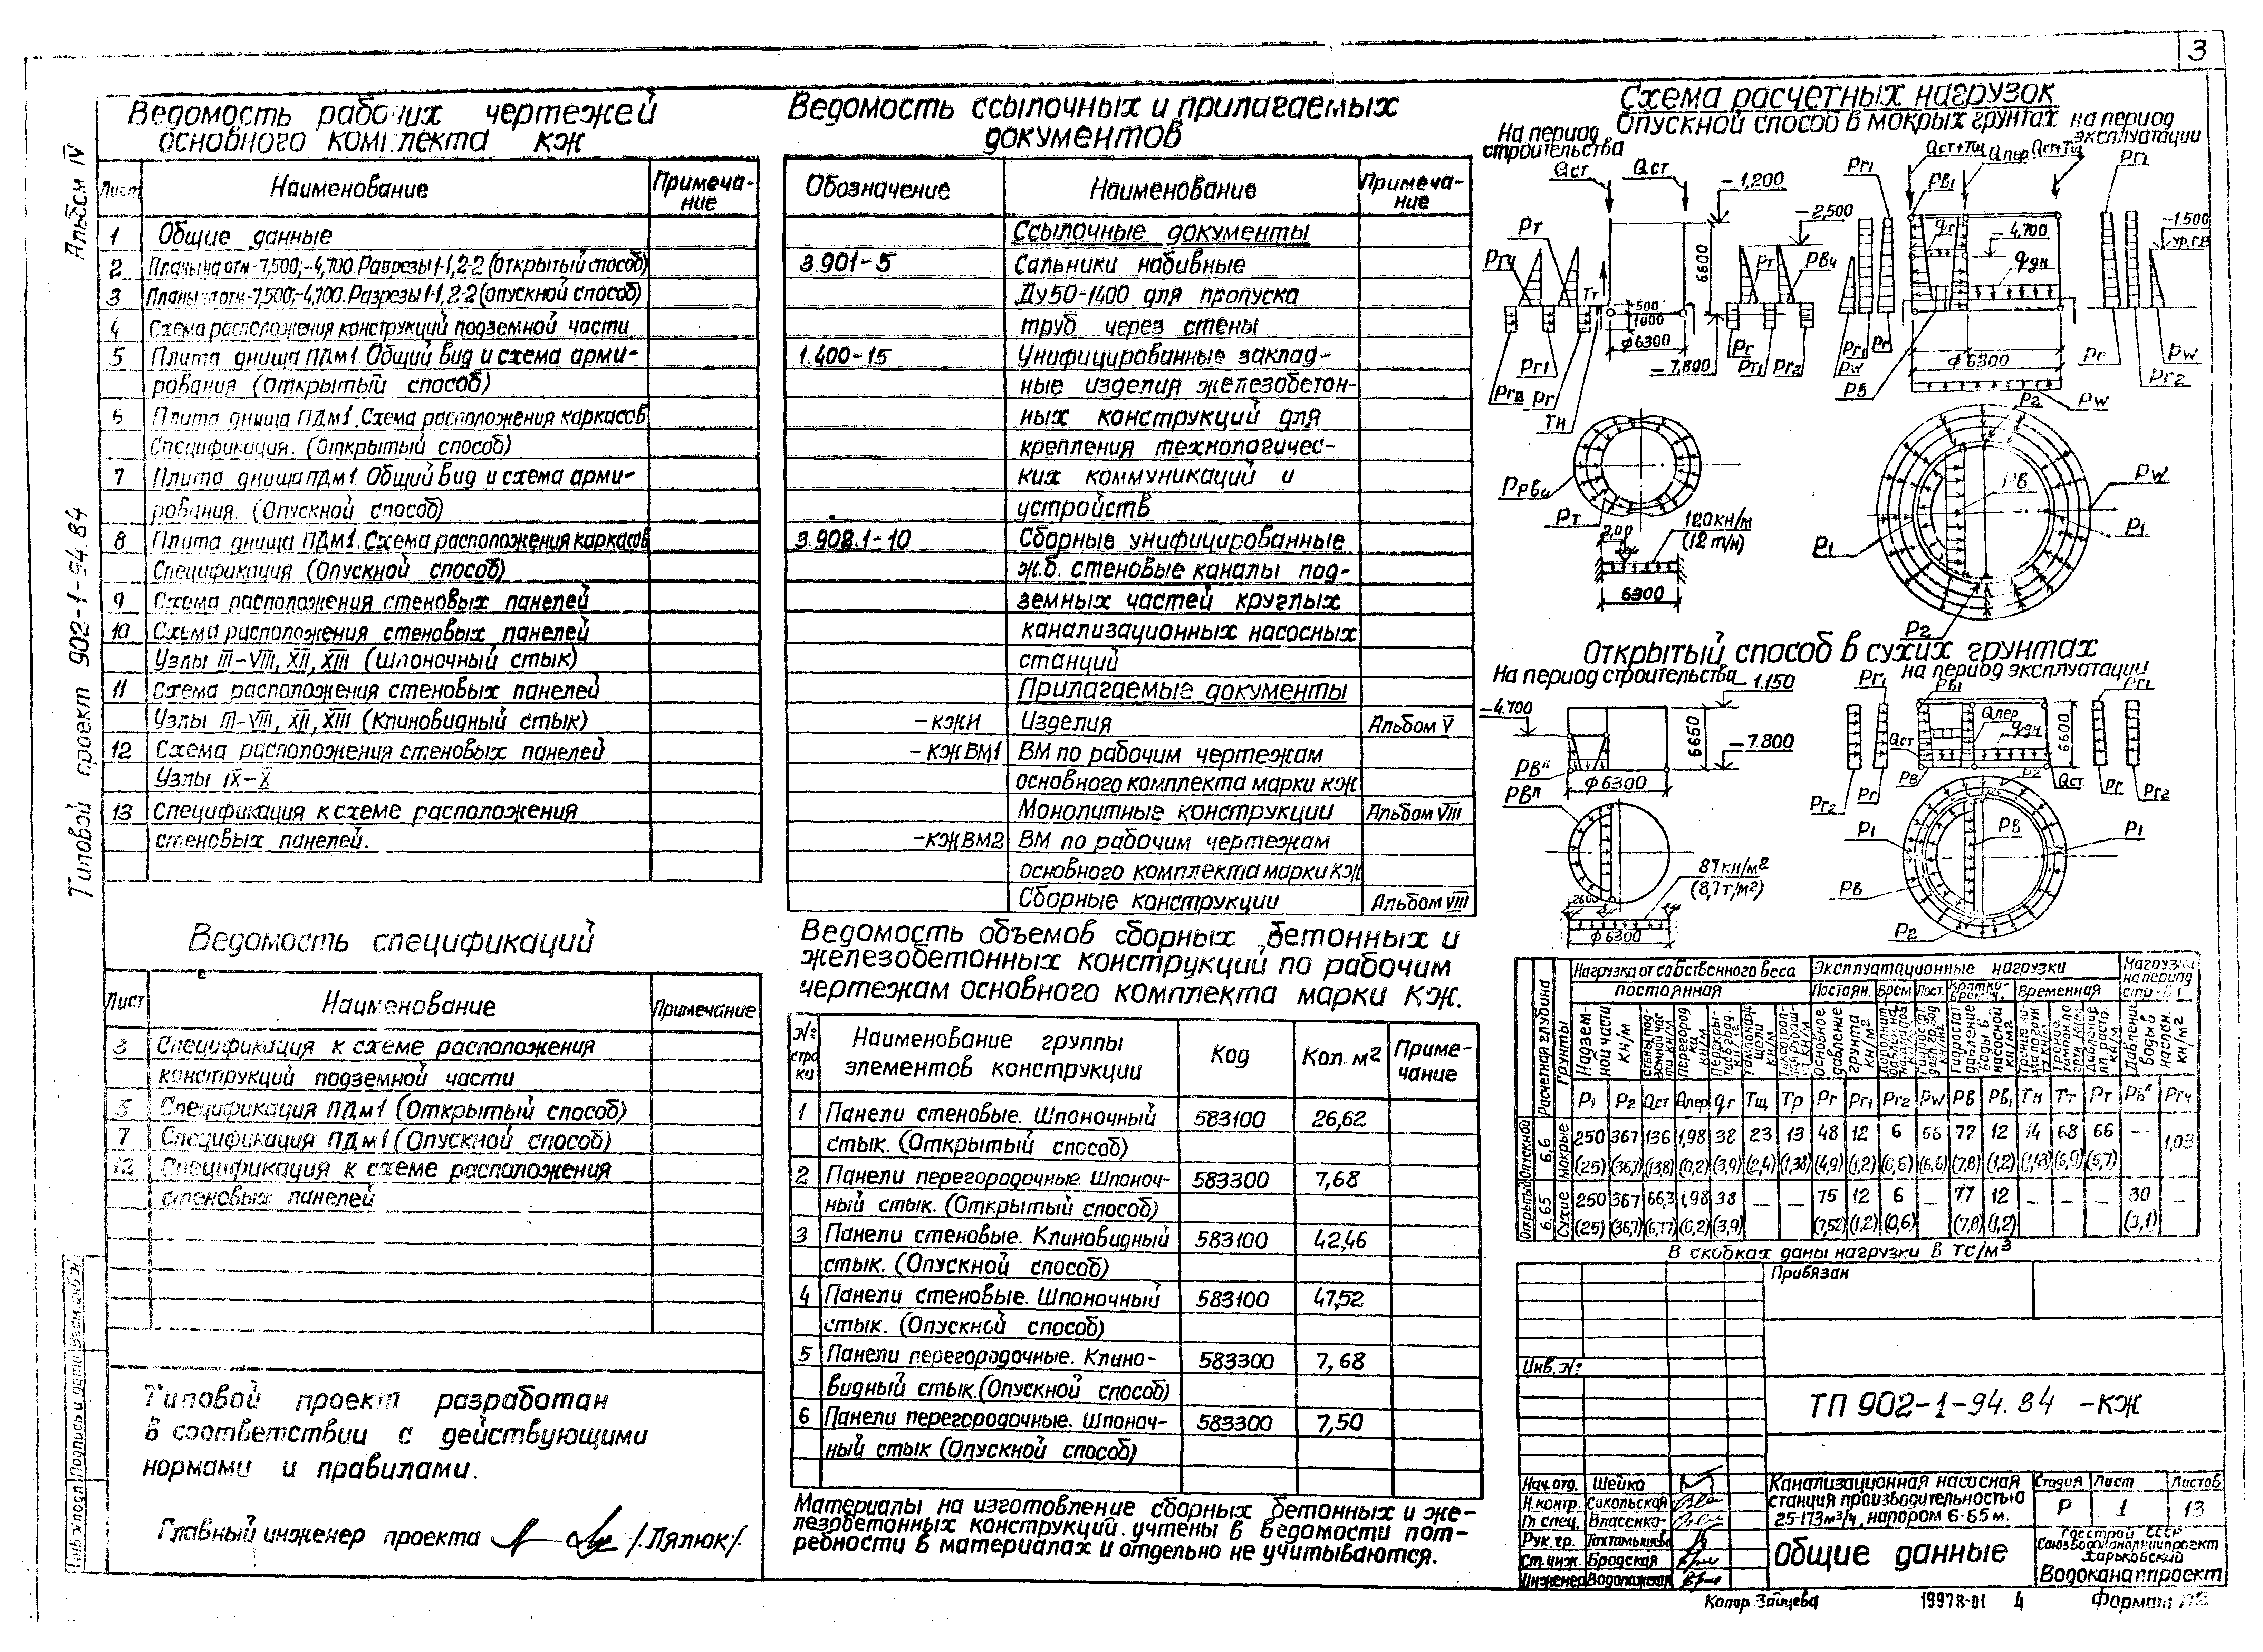 3
Альбом IV
Типовой проект 902-1-94.84
Ведомость рабочих чертежей
основного комплекта КЖ
Лист Наименование Примеча-
ние
1 Общие данные
2 Планы на отм-7,500;-4,700. Разрезы 1-1, 2-2 (открытый способ)
3 Планы на отм-7,500;-4,700. Разрезы 1-1, 2-2 (опускной способ)
4 Схема расположения конструкций подземной части
5 Плита днища ПДм1. Общий вид и схема арми-
рования (Открытый способ)
6 Плита днища ПДм1. Схема расположения каркасов
Спецификация. (Открытый способ)
7 Плита днища ПДм1. Общий вид и схема арми-
рования. (Опускной способ)
8 Плита днища ПДм1. Схема расположения каркасов
Спецификация (Опускной способ)
9 Схема расположения стеновых панелей
10 Схема расположения стеновых панелей
Узлы III-VIII, XII, XIII (Шпоночный стык)
11 Схема расположения стеновых панелей
Узлы III-VIII, XII, XIII (Клиновидный стык)
12 Схема расположения стеновых панелей
Узлы IX-X
13 Спецификация к схеме расположения
стеновых панелей.
Ведомость спецификаций
Лист Наименование Примечание
3 Спецификация к схеме расположения
конструкций подземной части
5 Спецификация ПДм1 (Открытый способ)
7 Спецификация ПДм1 (Опускной способ)
12 Спецификация к схеме расположения
стеновых панелей
Типовой проект разработан
в соответствии с действующими
нормами и правилами.
Главный инженер проекта /Лялюк/.
Инв.№подл. Подпись и дата Взам.инв.№
Ведомость ссылочных и прилагаемых
документов
Обозначение Наименование Примеча-
ние
Ссылочные документы
3.901-5 Сальники набивные
Ду50-1400 для пропуска
труб через стены
1.400-15 Унифицированные заклад-
ные изделия железобетон-
ных конструкций для
крепления технологичес-
ких коммуникаций и
устройств
3.902.1-10 Сборные унифицированные
ж.б. стеновые каналы под-
земных частей круглых
канализационных насосных
станций
Прилагаемые документы
-КЖИ Изделия Альбом V
-КЖ ВМ1 ВМ по рабочим чертежам
основного комплекта марки КЖ
Монолитные конструкции Альбом VIII
-КЖ ВМ2 ВМ по рабочим чертежам
основного комплекта марки КЖ
Сборные конструкции Альбом VIII
Ведомость объемов сборных бетонных и
железобетонных конструкций по рабочим
чертежам основного комплекта марки КЖ.
№ стро ки Наименование группы
элементов конструкции Код Кол. м² Приме-
чание
1 Панели стеновые. Шпоночный 583100 26,62
стык. (Открытый способ)
2 Панели перегородочные. Шпоноч- 583300 7,68
ный стык. (Открытый способ)
3 Панели стеновые. Клиновидный 583100 42,46
стык. (Опускной способ)
4 Панели стеновые. Шпоночный 583100 47,52
стык. (Опускной способ)
5 Панели перегородочные. Клино- 583300 7,68
видный стык. (Опускной способ)
6 Панели перегородочные. Шпоноч- 583300 7,50
ный стык (Опускной способ)
Материалы на изготовление сборных бетонных и же-
лезобетонных конструкций. учтены в Ведомости пот-
ребности в материалах и отдельно не учитываются.
Схема расчетных нагрузок
Опускной способ в мокрых грунтах
На период
строительства
на период
эксплуатации
Qст Qст -1,200
Рт -2,500
Рг4 6600 Рт Рв4
Тт 500 1000
ф6300
Рг1 -7,800 Рг Рт1 Рг2
Рг2 Рг Тн
Рг1 Qст+Тщ Qпер Qст+Тщ Рг1
Рв1 -1.500
qг -4,700 ур.г.в
qдн
Рг1 Рг ф6300 Рг Рw
Рw Рв Рг2
Рw
Р2
Ррв4 Рв Рw
Рт 120кн/м
(12т/н)
Р1 Р1
6300
Р2
Открытый способ в сухих грунтах
На период строительства на период эксплуатации
-1.150 Рг1 Рв1 Рг1
-4.700 Qпер
6650 Qст qдн 6600
-7.800
Рвп Рв
ф6300 Рг2 Рг Р2 Qст Рг Рг2
Рвп Р1 Рв Р1
87кн/м²
(8,7т/м²) Рв
2600
ф6300 Р2
Расчетная глубина Грунты Нагрузка от собственного веса Эксплуатационные нагрузки Нагрузка
на период
постоянная Постоян. Врем Пост. Временная
Надзем-
ной части
кн/м
Основное
давление
грунта
кн/м²
Р1 Р2 Qст Qпер qг Тщ Тр Рг Рг1 Рг2 Рw Рв Рв1 Тн Тт Рт Рвп Рг4
Опускной 6,6 мокрые 250 367 136 1,98 38 23 13 48 12 6 66 77 12 14 68 66 — 1,03
(25) (36,7) (13,8) (0,2) (3,9) (2,4) (1,38) (4,9) (1,2) (0,6) (6,6) (7,8) (1,2) (1,43) (6,9) (6,7)
Открытый 6.65 Сухие 250 367 66,3 1,98 38 — — 75 12 6 — 77 12 — — — 30 —
(25) (36,7) (6,77) (0,2) (3,9) (7,52) (1,2) (0,6) (7,8) (1,2) (3,1)
В скобках даны нагрузки в тс/м³
Привязан
Инв.№:
ТП 902-1-94.84 -КЖ
Нач.отд. Шейко
Н.контр. Сикольская
Гл спец. Власенко
Рук.гр.
Ст.инж. Бродская
Инженер Водолажская
Канализационная насосная
станция производительностью
25-173м³/ч, напором 6-65 м.
Стадия Лист Листов
Р 1 13
Общие данные
Госстрой СССР
Союзводоканалниипроект
Харьковский
Водоканалпроект
Копир. Зайцева 19978-01 4 Формат А2